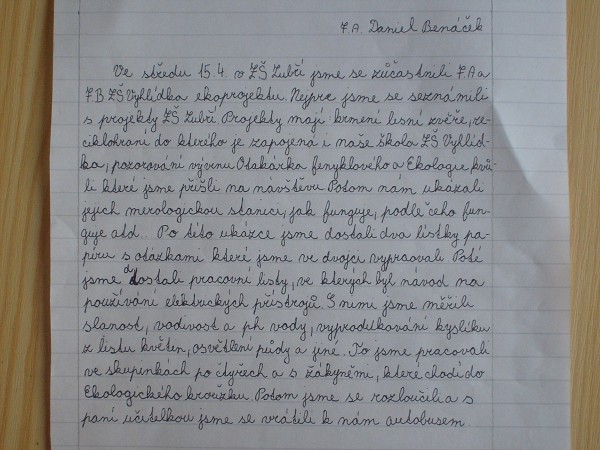 7.A. Daniel Benáček
Ve středu 15.4. v ZŠ Zubří jsme se zůčastnili 7.A a
7.B ZŠ Vyhlídka ekoprojektu. Nejprve jsme se seznámili
s projekty ZŠ Zubří. Projekty mají krmení lesní zvěře, re-
ciklohraní do kterého je zapojená i naše škola ZŠ Vyhlíd-
ka, pozorování vývinu Otakárka fenyklového a Ekologie, kvů-
li které jsme přišli na návštěvu. Potom nám ukázali
jejich merologickou stanici, jak funguje, podle čeho fun-
guje atd.. Po této ukázce jsme dostali dva lístky pa-
píru s otázkami které jsme ve dvojci vypracovali. Poté
jsme dostali pracovní listy, ve kterých byl návod na
používání elektrických přístrojů. S nimi jsme měřili
slanost, vodivost a ph vody, vyprodukování kyslíku
z listu květen, osvětlení půdy a jiné. To jsme pracovali
ve skupinkách po čtyřech a s žákyněmi, které chodí do
Ekologického kroužku. Potom jsme se rozloučili a s
paní učitelkou jsme se vrátili k nám autobusem.